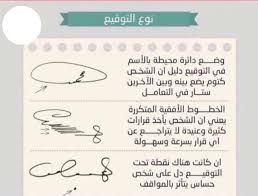 نوع التوقيع
وضع دائرة محيطة بالأسم
في التوقيع دليل ان الشخص
كتوم يضع بينه وبين الآخرين
ستار في التعامل
الخطوط الأفقية المتكررة
يعني ان الشخص يأخذ قرارات
كثيرة وعنيدة لا يتراجع عن
اي قرار بسرعة وسهولة
ان كانت هناك نقطة تحت
التوقيع دل على شخص
حساس يتأثر بالمواقف